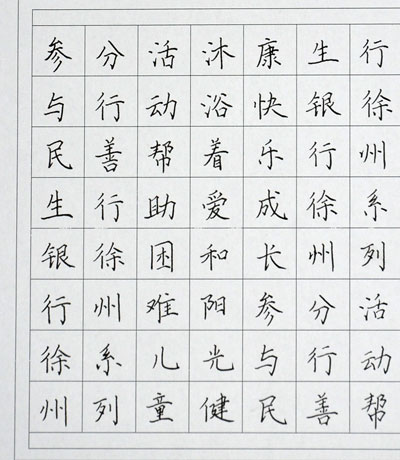 参与民生银行徐州
分行善行徐州系列
活动帮助困难儿童
沐浴着爱和阳光健
康快乐成长参与民
生银行徐州分行善
行徐州系列活动帮